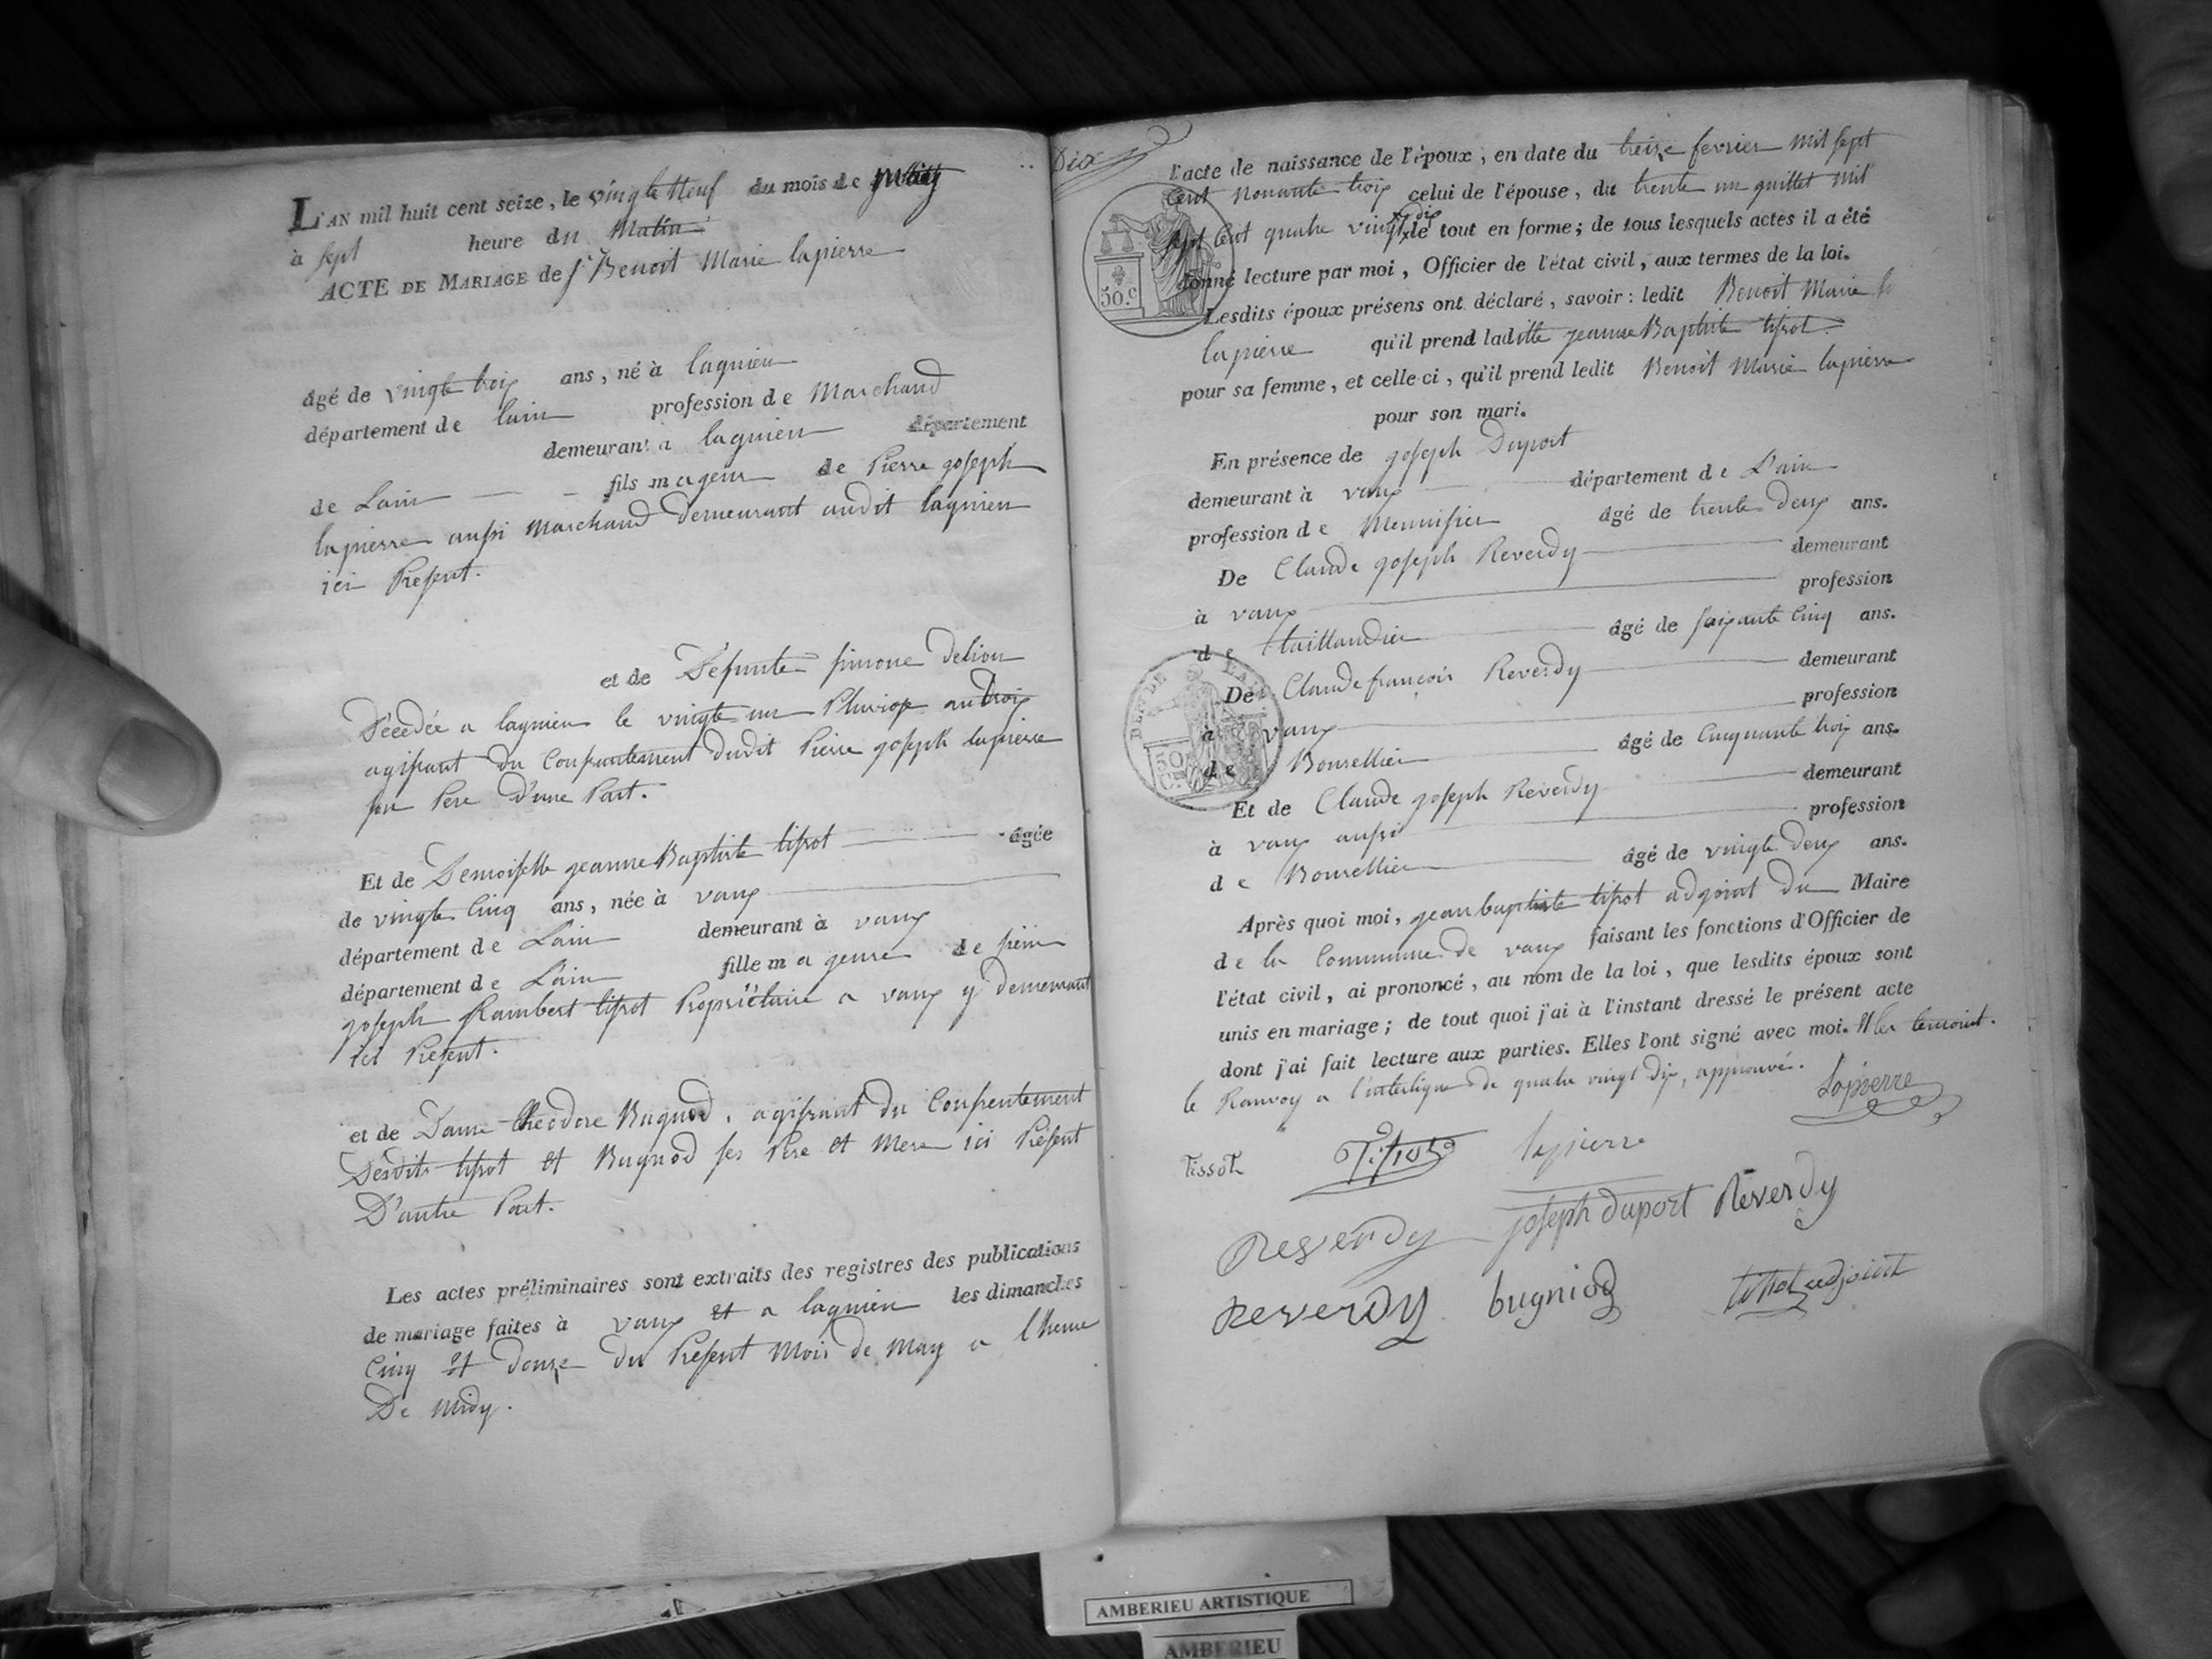 L'AN mil huit cent seize, le vingte Neuf du mois de May
à sept heure du Matin
ACTE DE MARIAGE de Sr Benoit Marie lapierre
âgé de vingte trois ans, né à lagnieu
département de lain profession de Marchand
demeurant a lagnieu département
de Lain fils mageur de Pierre joseph
lapierre aussi Marchand demeurant audit lagnieu
ici Present.
et de Défunte simone
Décédée a lagnieu le vingte un Pluviose an trois
agissant du Consentement dudit Pierre joseph lapierre
son Pere D'une Part.
Et de Demoiselle jeanne Baptiste tissot âgée
de vingte Cinq ans, née à vaux
département de Lain demeurant à vaux
département de Lain fille mageure de
joseph Rambert tissot Propriétaire a vaux y demeurant
ici Present.
et de Dame theodore Bugnod, agissant du Consentement
Desdits tissot et Bugnod ses Pere et Mere ici Present
D'autre Part.
Les actes préliminaires sont extraits des registres des publications
de mariage faites à vaux et a lagnieu les dimanches
Cinq et douze du Présent Mois de May a l'heure
De Midy.
Dix
l'acte de naissance de l'époux, en date du treize fevrier mil sept
Cent Nonante trois celui de l'épouse, du trente un juillet mil
sept Cent quatre vingt dix le tout en forme; de tous lesquels actes il a été
donné lecture par moi, Officier de l'état civil, aux termes de la loi.
50.c
Lesdits époux présens ont déclaré, savoir: ledit Benoit Marie
lapierre qu'il prend laditte jeanne Baptiste tissot
pour sa femme, et celle-ci, qu'il prend ledit Benoit Marie lapierre
pour son mari.
En présence de joseph Duport
demeurant à vaux département de L'ain
profession de Menuisier âgé de trente deux ans.
De Claude joseph Reverdy demeurant
à vaux profession
de taillandier âgé de soixante Cinq ans.
De Claude françois Reverdy demeurant
à vaux profession
de Bourellier âgé de Cinquante trois ans.
Et de Claude joseph Reverdy demeurant
à vaux aussi profession
de Bourellier âgé de vingte deux ans.
Après quoi moi, jean baptiste tissot adjoint du Maire
de la Commune de vaux faisant les fonctions d'Officier de
l'état civil, ai prononcé, au nom de la loi, que lesdits époux sont
unis en mariage; de tout quoi j'ai à l'instant dressé le présent acte
dont j'ai fait lecture aux parties. Elles l'ont signé avec moi. Et les temoins.
le Ranvoy a l'interligne de quatre vingt Dix, approuvé.
Lapierre
tissot Tissot lapierre
Reverdy joseph duport Reverdy
Reverdy bugniod tissot adjoint
AMBERIEU ARTISTIQUE
AMBERIEU